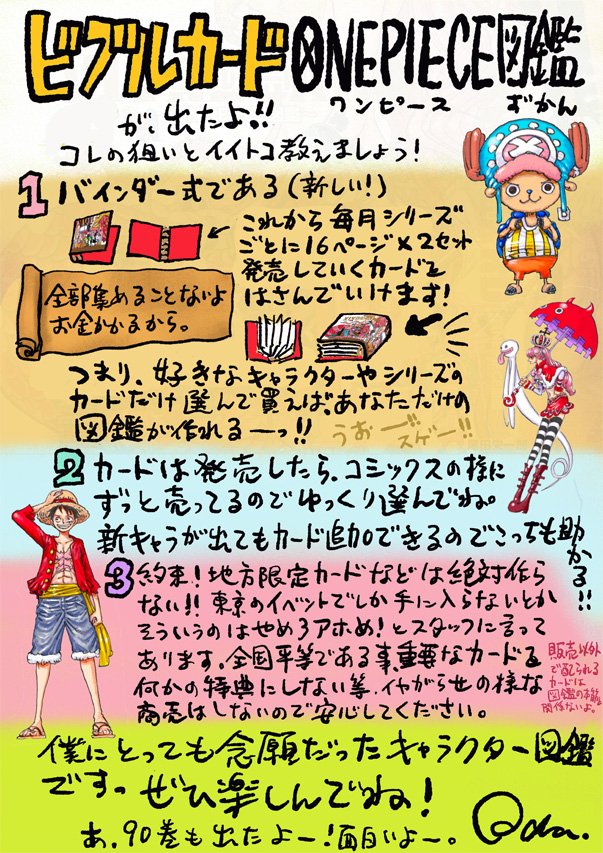 ビブルカードONEPIECE図鑑
ワンピース ずかん
が、出たよ!!
コレの狙いとイイトコ教えましょう!
1 バインダー式である(新しい!)
これから毎月シリーズ
ごとに16ページ×2セット
発売していくカードを
はさんでいけます!
全部集めることないよ
お金かかるから。
つまり、好きなキャラクターやシリーズの
カードだけ選んで買えば、あなただけの
図鑑が作れるーっ!!
うおーー!! スゲー!!
2 カードは発売したら、コミックスの様に
ずっと売ってるのでゆっくり選んでね。
新キャラが出てもカード追加できるのでこっちも助かる!!
3 約束!地方限定カードなどは絶対作ら
ない!! 東京のイベントでしか手に入らないとか
そういうのはやめろアホめ!とスタッフに言って
あります。全国平等である事、重要なカードを
何かの特典にしない等、イヤがらせの様な
商売はしないので安心してください。
販売以外
で配られる
カードは
図鑑の本質に
関係ないよ。
僕にとっても念願だったキャラクター図鑑
ですっ ぜひ楽しんでね!
あ、90巻も出たよー!面白いよー。
Oda.